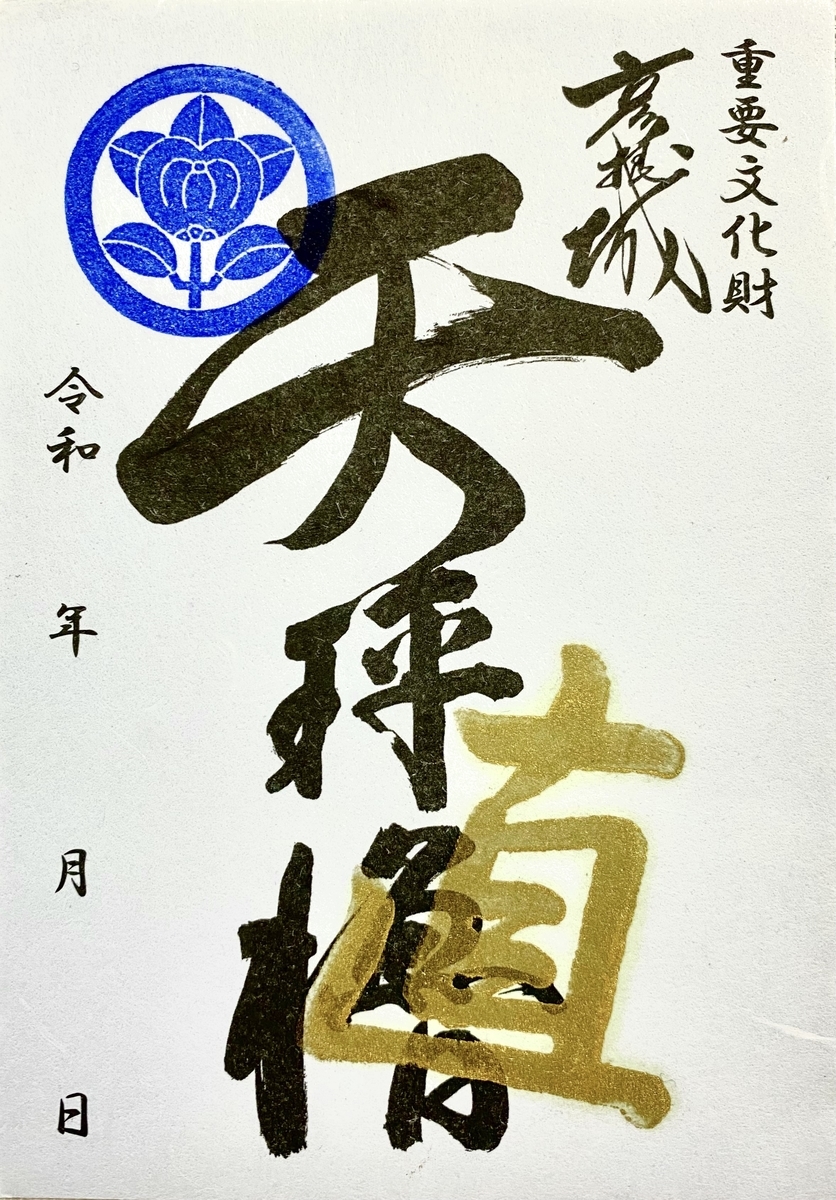 重要文化財
彦根城
天秤櫓
直
令和 年 月 日